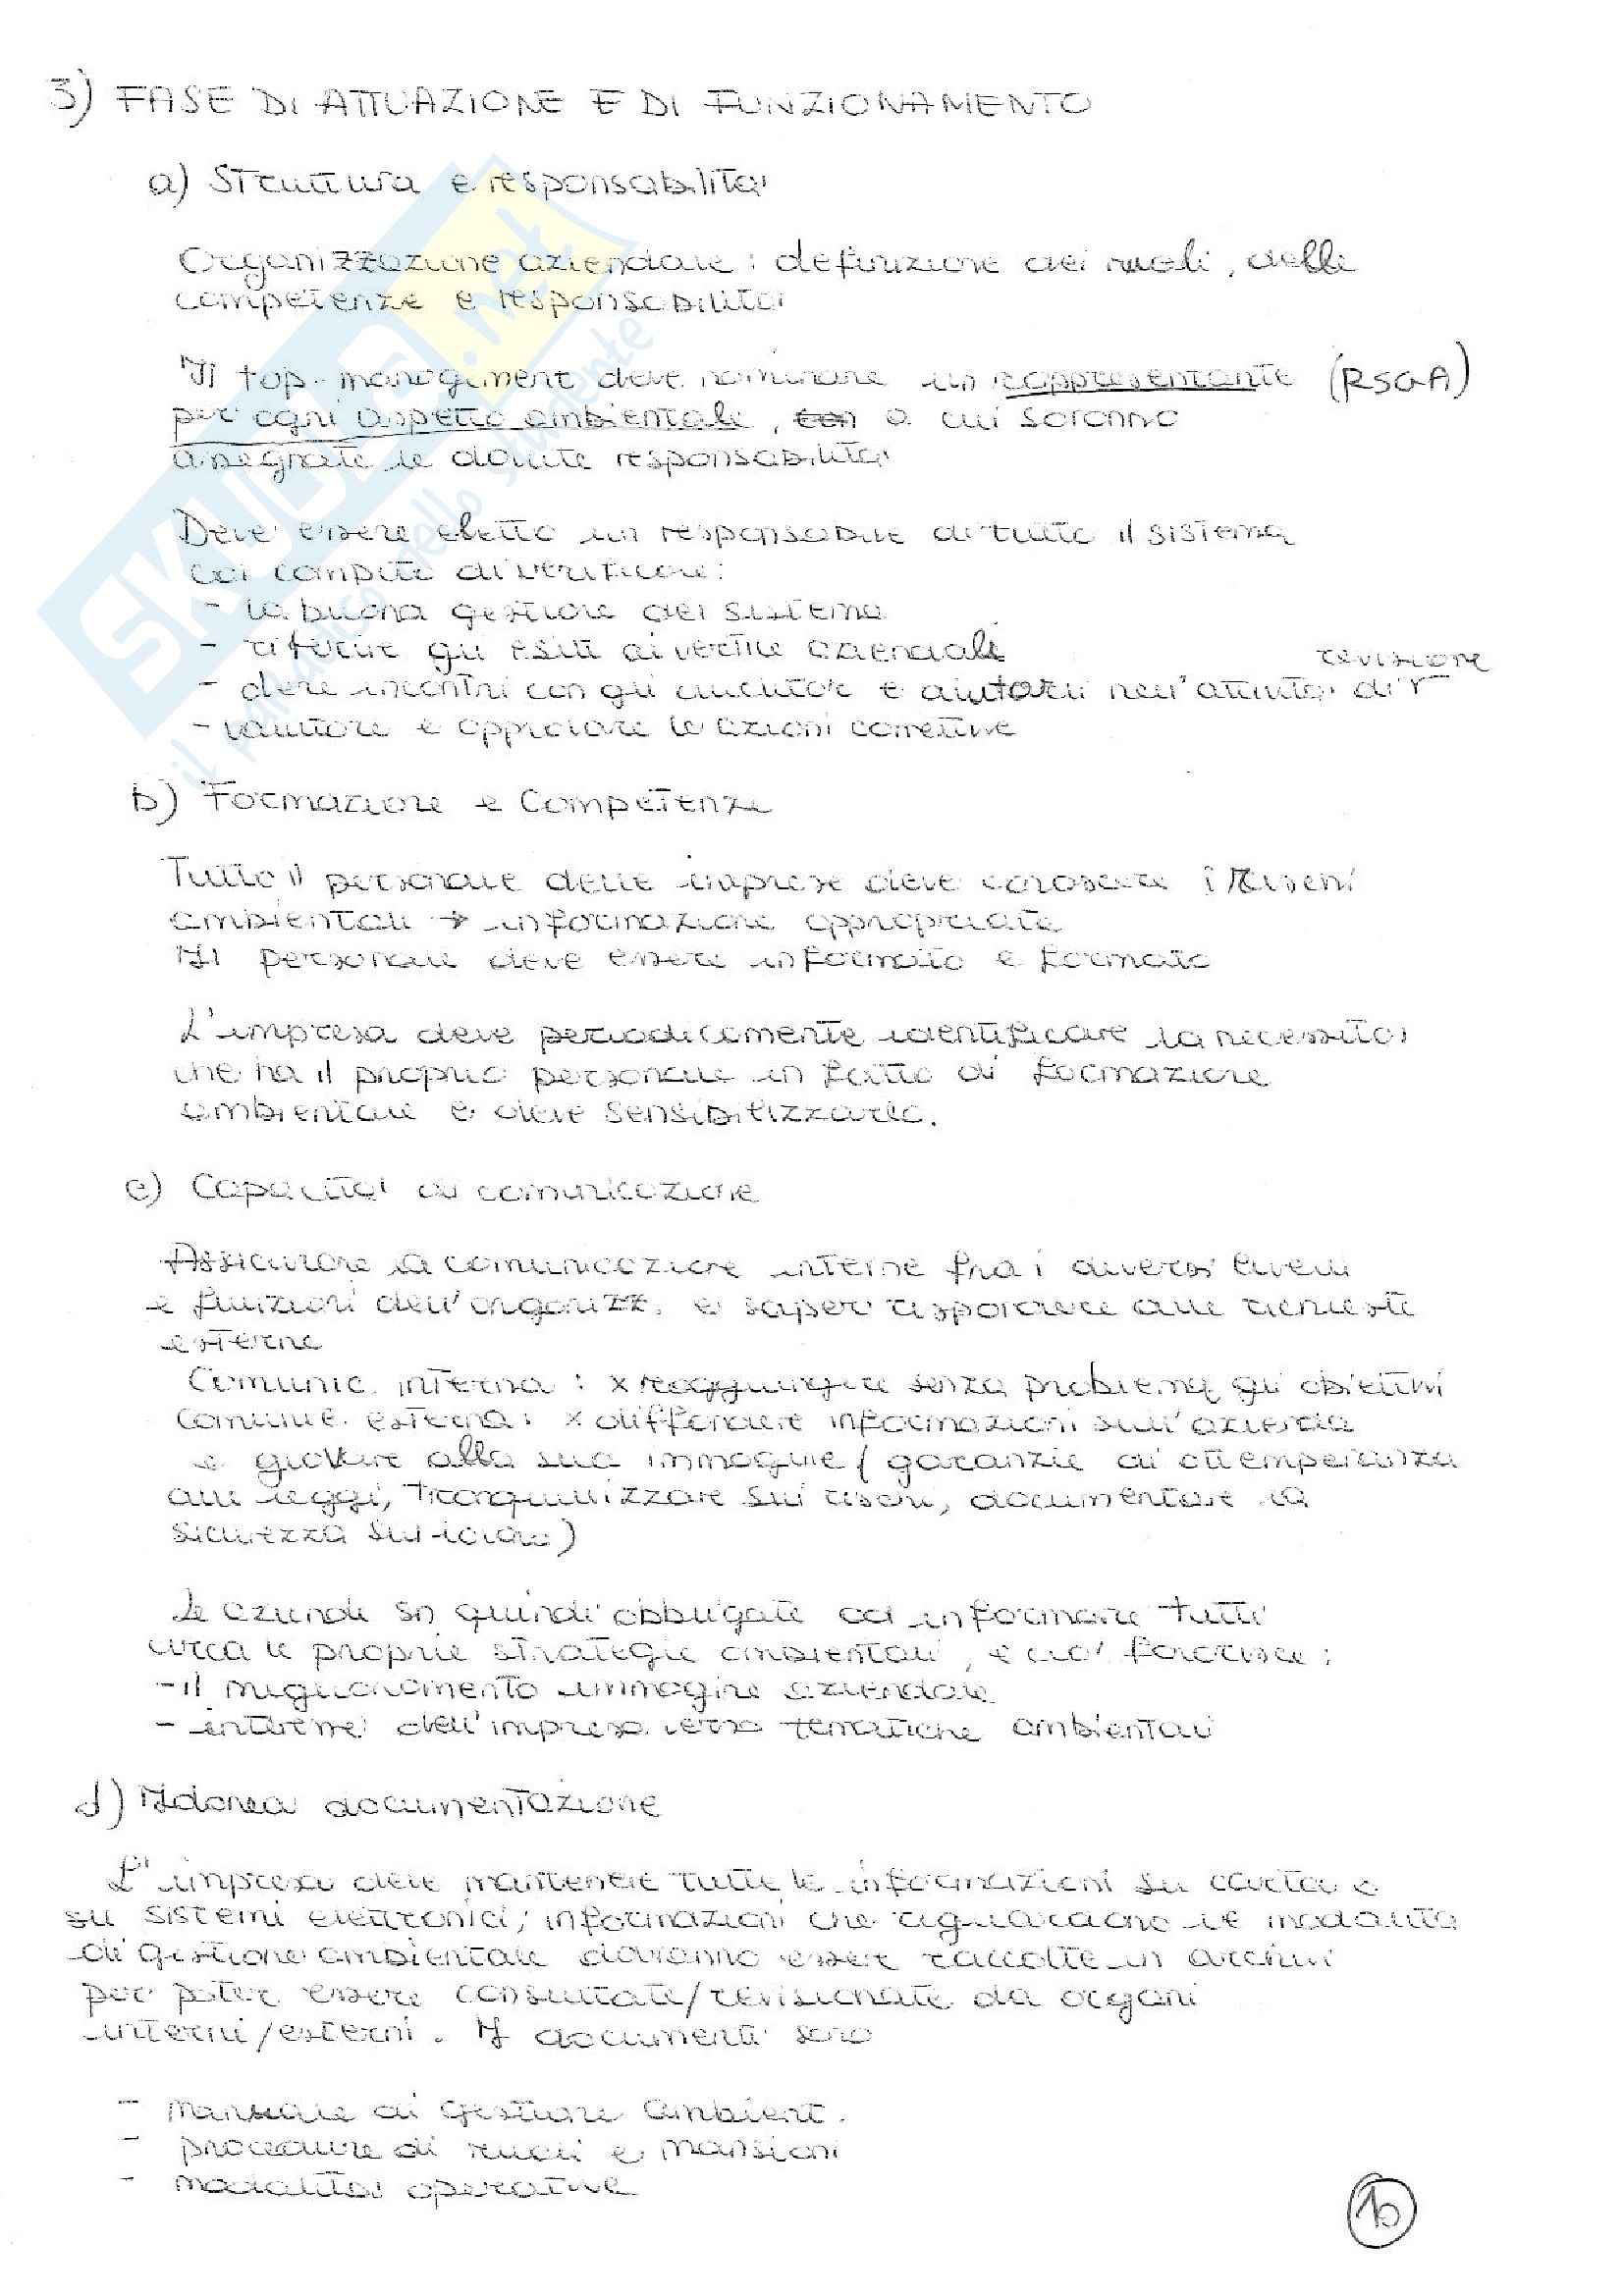 3) FASE DI ATTUAZIONE E DI FUNZIONAMENTO
a) Struttura e responsabilità
Organizzazione aziendale : definizione dei ruoli, delle
competenze e responsabilità
Il top-management deve nominare un rappresentante (RSGA)
per ogni aspetto ambientale, con a cui saranno
assegnate le dovute responsabilità
Deve essere eletto un responsabile di tutto il sistema
coi compito di verificare:
- la buona gestione del sistema
- riferire gli esiti ai vertici aziendali
revisione
- dere incontri con gli auditor e aiutarli nell'attività di r
- valutare e approvare le azioni correttive
b) Formazione e Competenze
Tutto il personale delle imprese deve conoscere i Rischi
ambientali → informazione appropriate
Il personale deve essere informato e formato
L'impresa deve periodicamente identificare la necessità
che ha il proprio personale in fatto di formazione
ambientale e deve sensibilizzarlo.
c) Capacità di comunicazione
Assicurare la comunicazione interne fra i diversi livelli
e funzioni dell'organizz. e saper rispondere alle richieste
esterne
Comunic. interna : x raggiungere senza problema gli obiettivi
comunic. esterna : x diffondere informazioni sull'azienda
e giovare alla sua immagine (garanzie di ottemperanza
alle leggi, tranquillizzare sui rischi, documentare la
sicurezza sul lavoro)
Le aziende sn quindi obbligate ad informare tutti
circa le proprie strategie ambientali, e ciò favorisce :
- il miglioramento immagine aziendale
- interesse dell'impresa verso tematiche ambientali
d) Idonea documentazione
L'impresa deve mantenere tutte le informazioni su carta o
su sistemi elettronici; informazioni che riguardano le modalità
di gestione ambientale dovranno esser raccolte in archivi
per poter essere consultate/revisionate da organi
interni/esterni. I documenti sono
- Manuale di gestione ambient.
- procedure di ruoli e mansioni
- modalità operative
10
SKUOLA.net
il paradiso dello studente